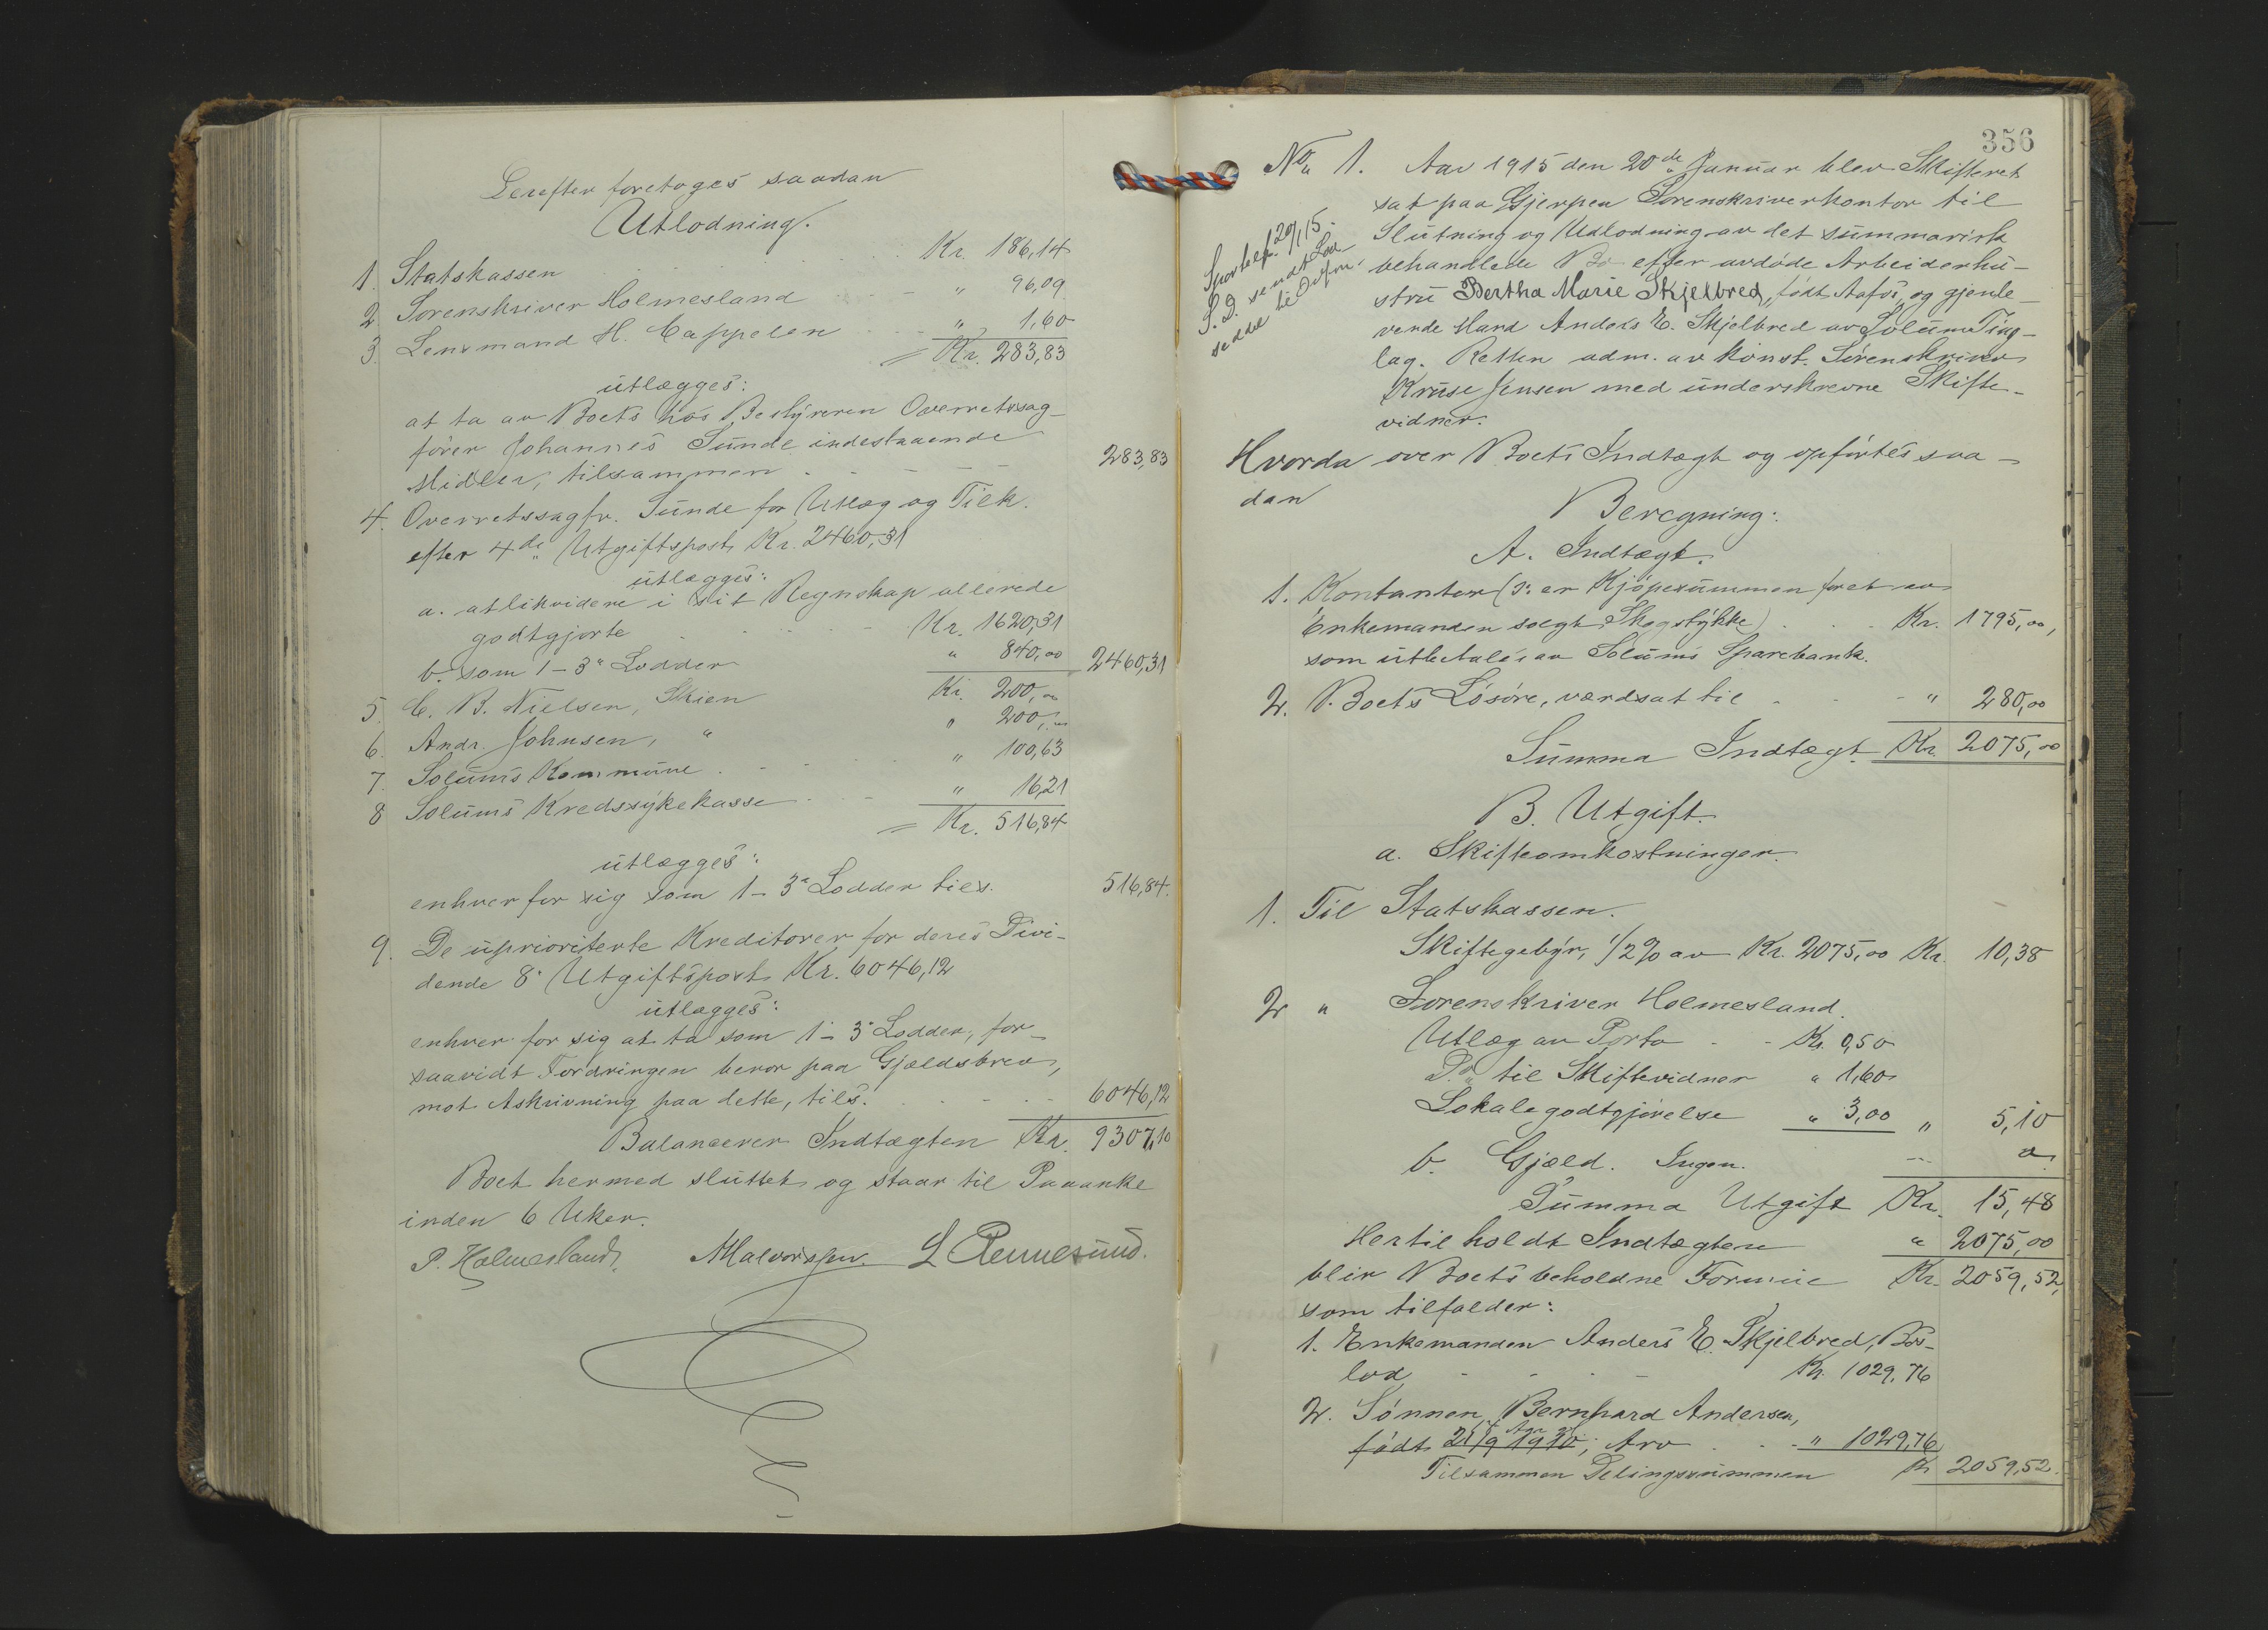 Derefter foretoges saadan
Utlodning.
1. Statskassen Kr. 186,14
2 Sorenskriver Holmesland " 96,09
3. Lensmand H. Cappelen " 1,60
= Kr. 283,83
utlægges:
at ta av Boets hos Bestyreren Overretssag-
fører Johannes Sunde indestaaende
Midler, tilsammen 283,83
4. Overretssagfr. Sunde for Utlæg og Tilk.
efter 4de Utgiftspost Kr. 2460,31
utlægges:
a. at likvidere i sit Regnskap allerede
godtgjorte Kr. 1620,31
b. som 1-3" Lodder " 840,00 2460,31
5. C. B. Nielsen, Skien Kr. 200,00
6. Andr. Johnsen, " " 200,00
7. Solums Kommune " 100,63
8 Solums Kredssykekasse " 16,21
= Kr. 516,84
utlægges:
enhver for sig som 1-3" Lodder tils. 516,84.
9. De uprioriterte Kreditorer for deres Divi-
dende 8" Utgiftspost Kr. 6046,12
utlægges:
enhver for sig at ta som 1-3" Lodder, for-
saavidt Fordringen beror paa Gjældsbrev,
mot Askrivning paa dette, tils. 6046,12
Balancerer Indtægten Kr. 9307,10
Boet hermed sluttet og staar til Paaanke
inden 6 Uker.
P. Holmesland. L Rennesund.
356
No 1. Aar 1915 den 20de Januar blev Skifteret
sat paa Gjerpen Sorenskriverkontor til
Slutning og Udlodning av det summarisk
behandlede Bo efter avdøde Arbeiderhu-
stru Bertha Marie Skjelbred, født Aafos, og gjenle-
vende Mand Anders E. Skjelbred av Solum Ting-
lag. Retten adm. av konst. Sorenskriver
Kruse Jensen med underskrevne Skifte-
vidner.
20/1 15.
S. D. sendt
seddel til
Hvorda over Boets Indtægt og opførtes saa-
dan
Beregning:
A. Indtægt.
1. Kontanter (ɔ: er Kjøpesummen for et av
Enkemanden solgt Skogstykke) Kr. 1795,00,
som utbetales av Solums Sparebank.
2. Boets Løsøre, værdsat til " 280,00
Summa Indtægt Kr. 2075,00
B. Utgift.
a. Skifteomkostninger.
1. Til Statskassen.
Skiftegebyr, 1/2 % av Kr. 2075,00 Kr. 10,38
2 " Sorenskriver Holmesland.
Utlæg av Porto Kr. 0,50
Do til Skiftevidner " 1,60
Lokalegodtgjørelse " 3,00 " 5,10
b. Gjæld. Ingen.
Summa Utgift Kr. 15,48
Hertil holdt Indtægten " 2075,00
blir Boets beholdne Formue Kr. 2059,52,
som tilfalder:
1. Enkemanden Anders E. Skjelbred, Bos-
lod Kr. 1029,76
2. Sønnen Bernhard Andersen,
født 21/9 1910, Arv " 1029,76
Tilsammen Delingssummen Kr 2059,52.